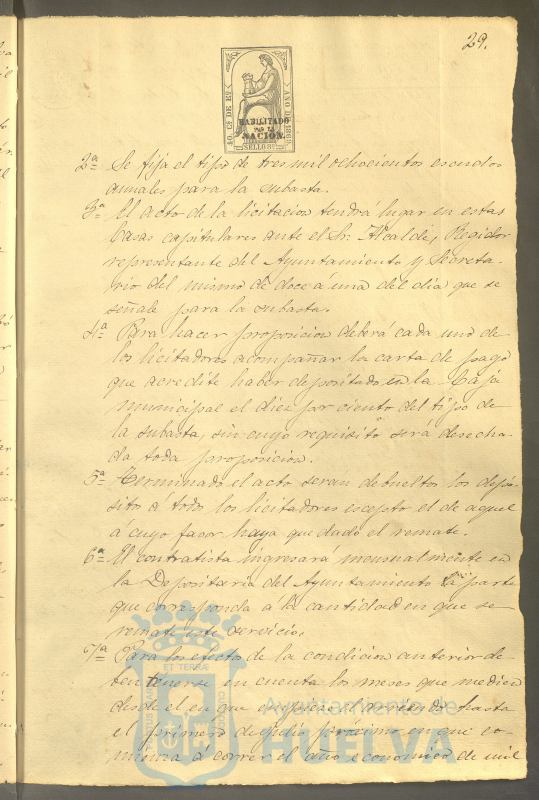 29.
40. Cs DE Eo AÑO DE 1869.
HABILITADO
POR LA
NACION.
SELLO 8º
2ª Se fija el tipo de tres mil ochocientos escudos
anuales para la subasta.
3ª El acto de la licitacion tendrá lugar en estas
Casas capitulares ante el Sr. Alcalde, Regidor
representante del Ayuntamiento y Secreta-
rio del mismo de doce á una del dia que se
señale para la subasta.
4ª Para hacer proposicion deberá cada uno de
los licitadores acompañar la carta de pago
que acredite haber depositado en la Caja
municipal el diez por ciento del tipo de
la subasta, sin cuyo requisito será desecha-
da toda proposicion.
5ª Terminado el acto seran debueltos los depó-
sitos á todos los licitadores escepto el de aquel
á cuyo favor haya quedado el remate.
6ª El contratista ingresará mensualmente en
la Depositaria del Ayuntamiento la parte
que corresponda a la cantidad en que se
remate este servicio.
7ª Para los efectos de la condicion anterior de-
ben tenerse en cuenta los meses que medien
desde el en que empiece el arriendo hasta
el primero de Julio procsimo en que co-
menzará á correr el año economico de mil
PORTUS MARIS ET TERRAE CUSTODIA
Ayuntamiento de
HUELVA